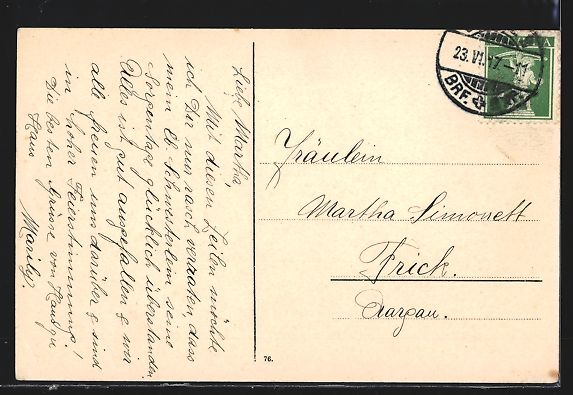 Liebe Martha,
Mit diesen Zeilen möchte
ich Dir nur rasch verraten dass
mein Schwesterlein seine
Sorgentage glücklich überstanden.
Alles ist gut ausgefallen & wir
alle freuen uns darüber & sind
in hoher Feststimmung!
Die besten Grüsse von Haus zu
Haus
Marily.
23.VI.17.-11
BRF.
Fräulein
Martha Simonett
Frick.
Aargau.
76.